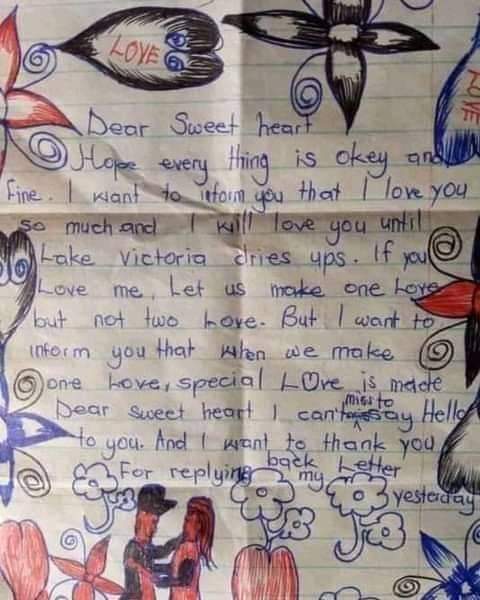 LOVE
Dear Sweet heart
Hope every thing is okey and
fine. I want to inform you that I love you
so much and I will love you until
Lake Victoria dries ups. If you
Love me, Let us make one Love
but not two Love. But I want to
inform you that when we make
one Love, special LOve is made
Dear sweet heart I can't miss to say Hello
to you. And I want to thank you
For replying back my Letter
yesterday